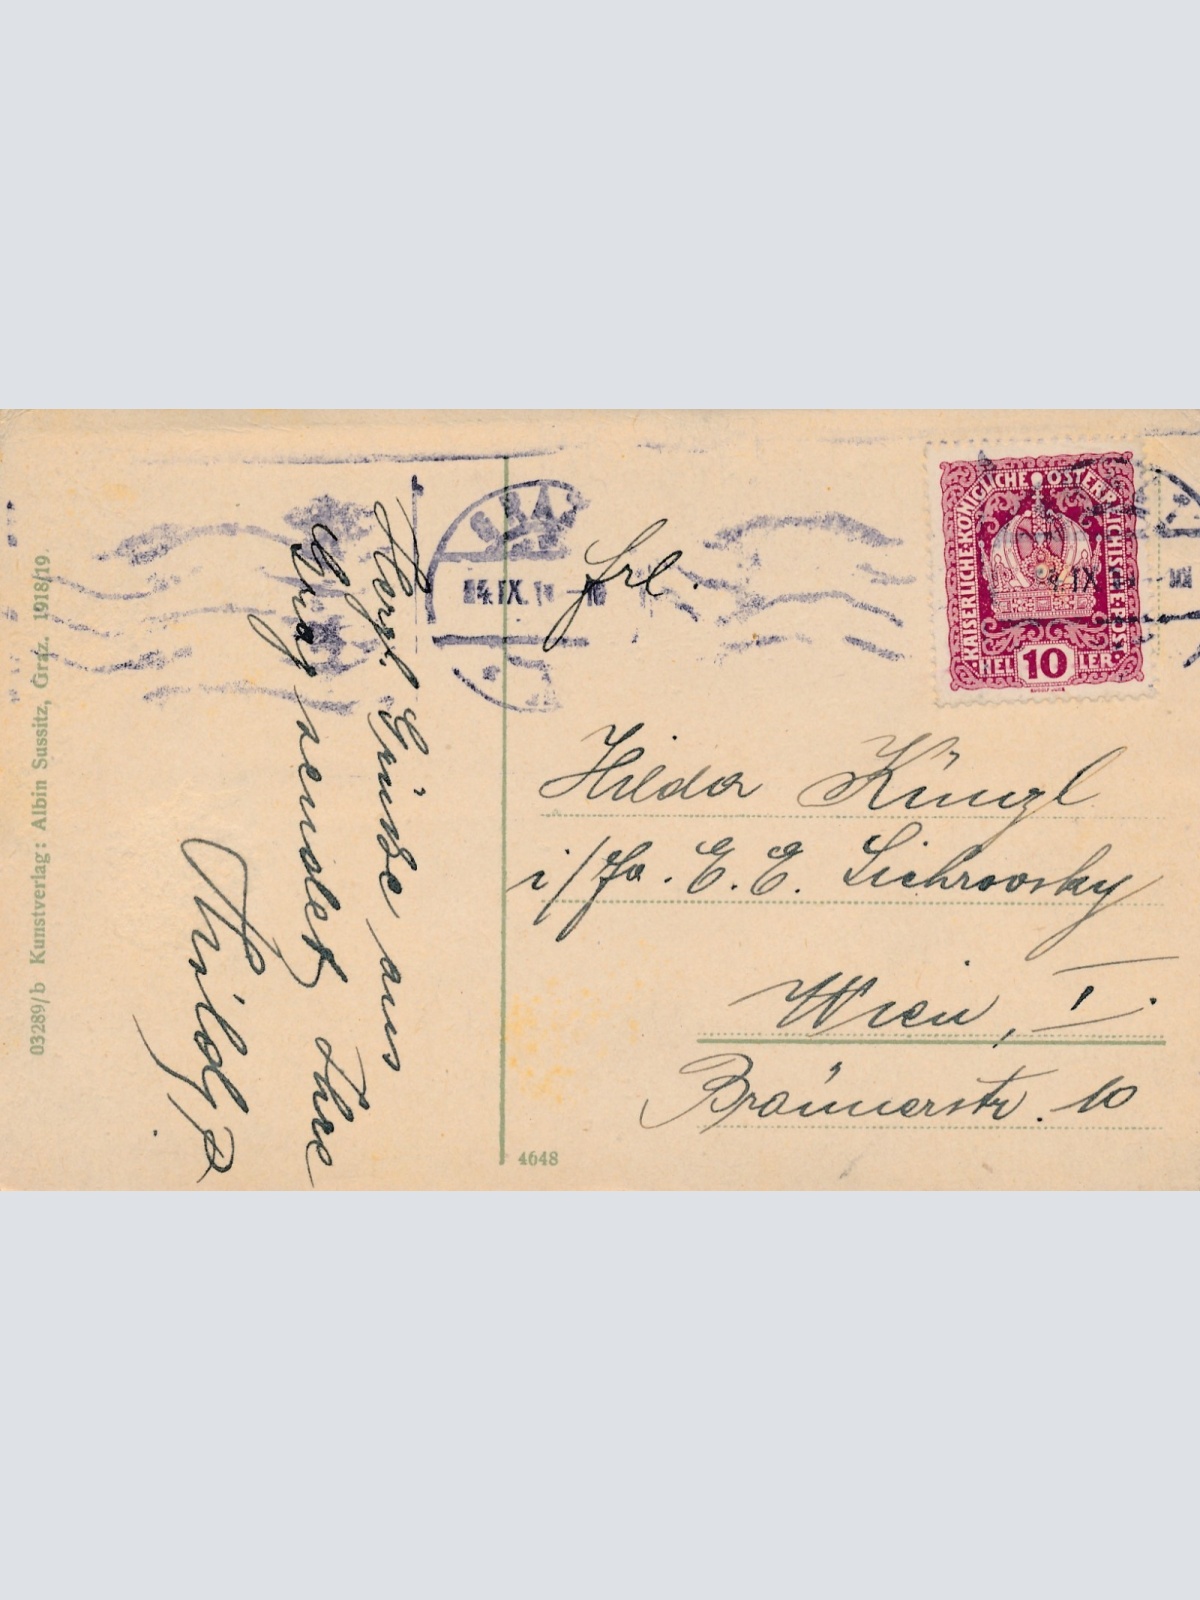 03289/b Kunstverlag: Albin Sussitz, Graz. 1918/19.
Herzl. Grüsse aus
Graz sendet Ihre
GRAZ
IX.
KAISERLICHE KÖNIGLICHE ÖSTERREICHISCHE POST
HEL 10 LER
IX
Frl.
Hilda Künzl
i/Fa. E. E. Sichrovsky
Wien, I.
Bräunerstr. 10
4648